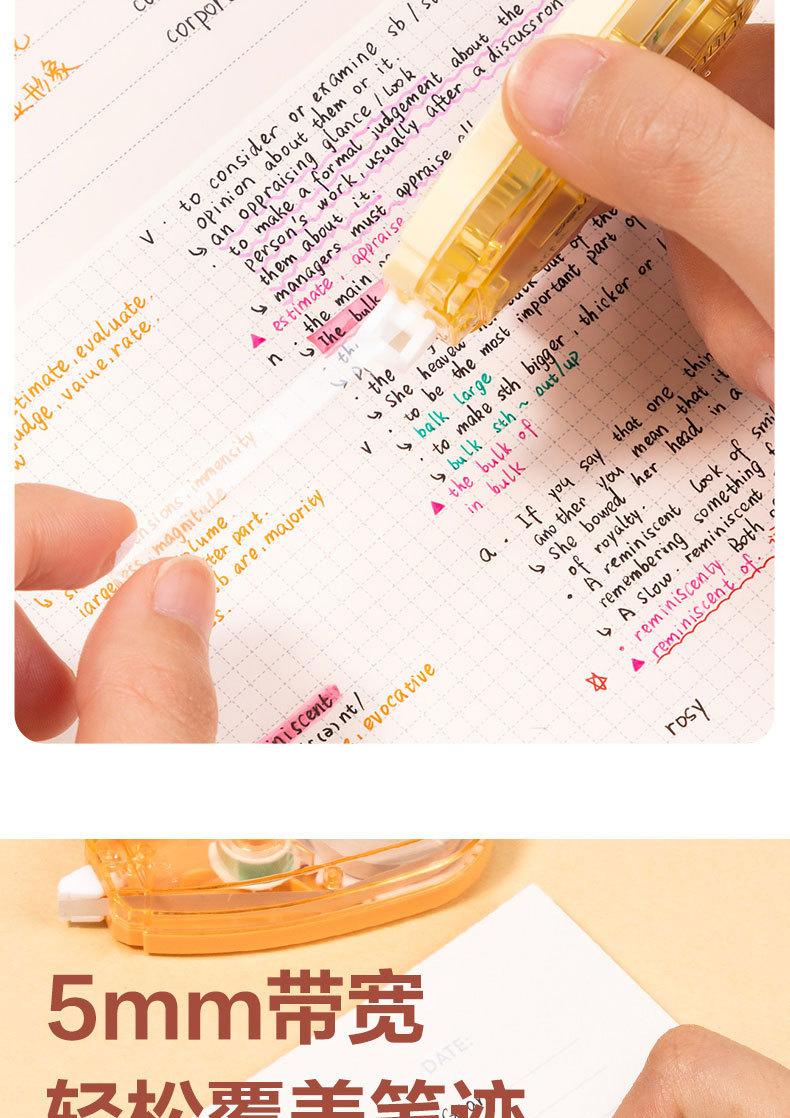 corpor
形象
v. to consider or examine sb / s
opinion about them or it
↳ an appraising glance / look
· to make a formal judgement about the
person's work, usually after a discussion
them about it.
↳ managers must appraise all
▲ estimate, appraise
n · the main
↳ The bulk
· the
↳ She heaved
· to be the most important part of
balk large
v · to make sth bigger, thicker or
↳ bulk sth ~ out/up
▲ the bulk of
in bulk
timate, evaluate
udge, value, rate.
immensity
magnitude
lume
ter part.
are, majority
a · If you say that one thin
another you mean that it
↳ She bowed her head in a
of royalty.
• A reminiscent look of
remembering something
↳ A slow. reminiscent
• reminiscently Both
▲ reminiscent of
rosy
niscent
evocative
5mm带宽
DATE:
轻松覆盖笔迹